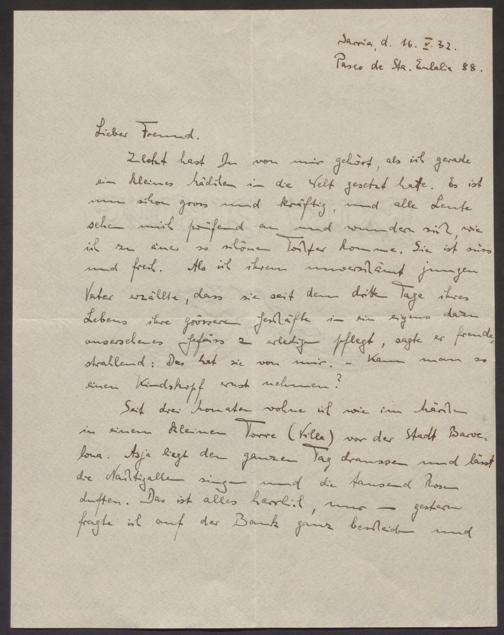 Sarria, d. 16. V. 32.
Paseo de Sta. Eulalia 88.
Lieber Freund.
Zletzt hast Du von mir gehört, als ich gerade
ein kleines Mädchen in die Welt gesetzt hatte. Es ist
nun schon gross und kräftig, und alle Leute
sehen mich prüfend an und wundern sich, wie
ich zu einer so schönen Tochter komme. Sie ist süss
und frech. Als ich ihrem unverschämt jungen
Vater erzählte, dass sie seit dem dritten Tage ihres
Lebens ihre grösseren Geschäfte in ein eigens dazu
ausersehenes Gefäss zu erledigen pflegt, sagte er freude-
strahlend: Das hat sie von mir. – Kann man so
einen Kindskopf ernst nehmen?
Seit drei Monaten wohne ich wie im Märchen
in einem kleinen Torre (Villa) vor der Stadt Barce-
lona. Asja liegt den ganzen Tag draussen und lässt
die Nachtigallen singen und die tausend Rosen
duften. Das ist alles herrlich, nur — gestern
fragte ich auf der Bank ganz bescheiden und